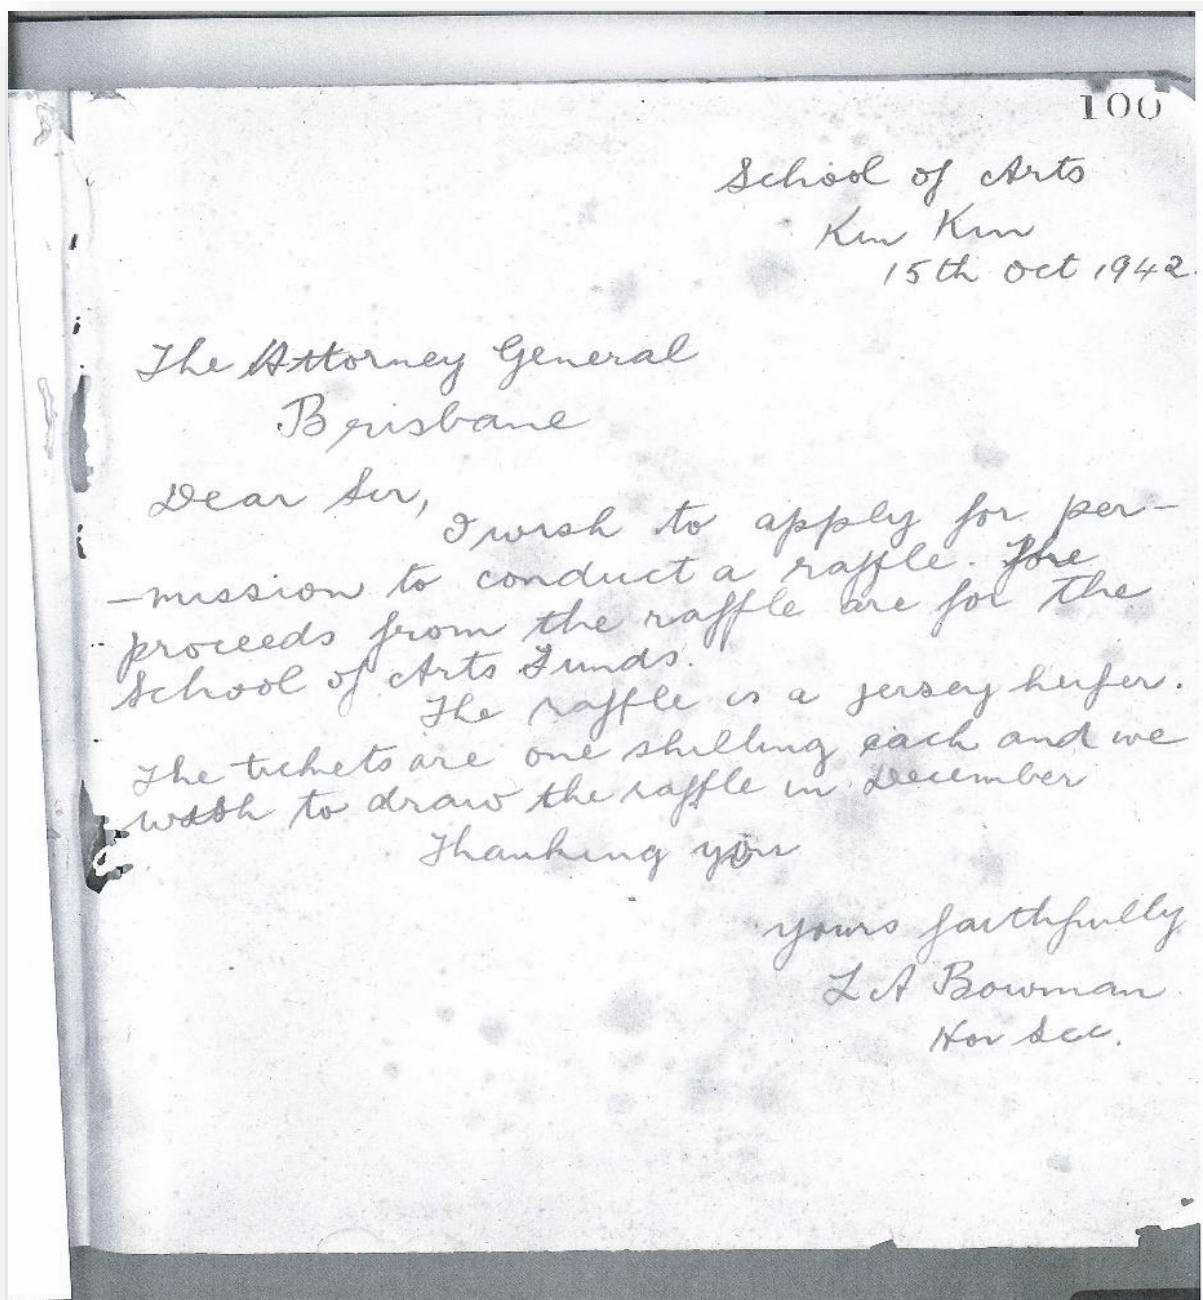 100
School of Arts
Kin Kin
15th Oct 1942.
The Attorney General
Brisbane
Dear Sir,
I wish to apply for per-
-mission to conduct a raffle. The
proceeds from the raffle are for the
School of Arts Funds.
The raffle is a jersey heifer.
The tickets are one shilling each and we
wish to draw the raffle in December
Thanking you
yours faithfully
L A Bowman
Hon Sec.